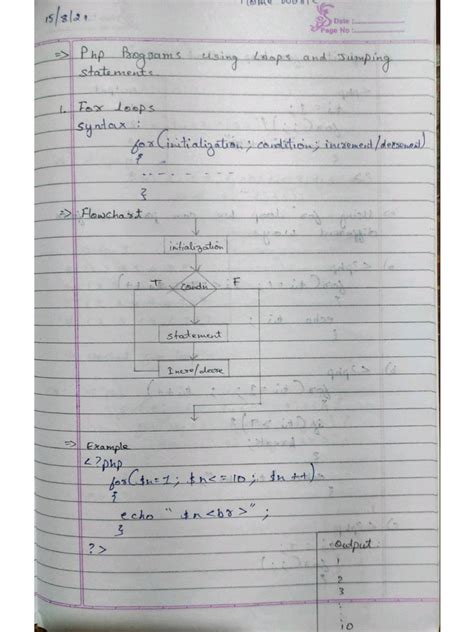 15/8/21
Date :
Page No :
=> Php Programs using Loops and Jumping
statements.
1. For loops
syntax :
for(initialization; condition; increment/decrement)
{
-- - - - -
}
=> Flowchart
initialization
T condn F
statement
Incre/decre
=> Example
<?php
for($n=1; $n<=10; $n++)
{
echo "$n<br>";
}
?>
Output:
1
2
3
:
10